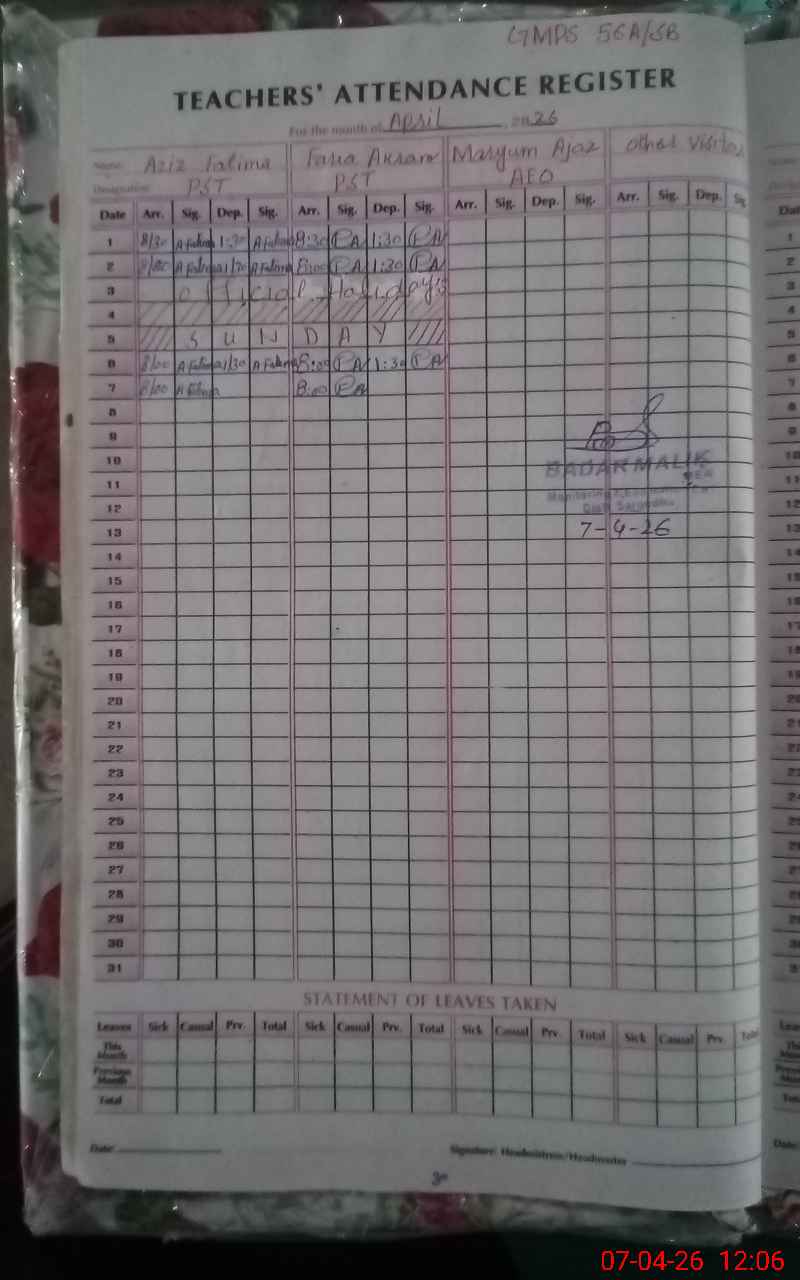 GMPS 56A/SB
TEACHERS' ATTENDANCE REGISTER
For the month of April 2026
Name: Aziz Fatima Faria Akram Maryum Ajaz Other Visitors
Designation PST PST AEO
Date Arr. Sig. Dep. Sig. Arr. Sig. Dep. Sig. Arr. Sig. Dep. Sig. Arr. Sig. Dep. Sig
1 8/30 A Fatima 1:30 A Fatima 8:30 1:30
2 8/00 A Fatima 1/30 A Fatima 8:00 1:30
3 Official Holidays
4
5 SUNDAY
6 8/00 A Fatima 1/30 A Fatima 8:00 1:30
7 8/00 A Fatima 8:00
8
9
10 BADAR MALIK
11
12
13 7-4-26
14
15
16
17
18
19
20
21
22
23
24
25
26
27
28
29
30
31
STATEMENT OF LEAVES TAKEN
Leaves Sick Casual Prv. Total Sick Casual Prv. Total Sick Casual Prv. Total Sick Casual Prv. Total
This Month
Previous Month
Total
Date: Signature: Headmistress/Headmaster
07-04-26 12:06